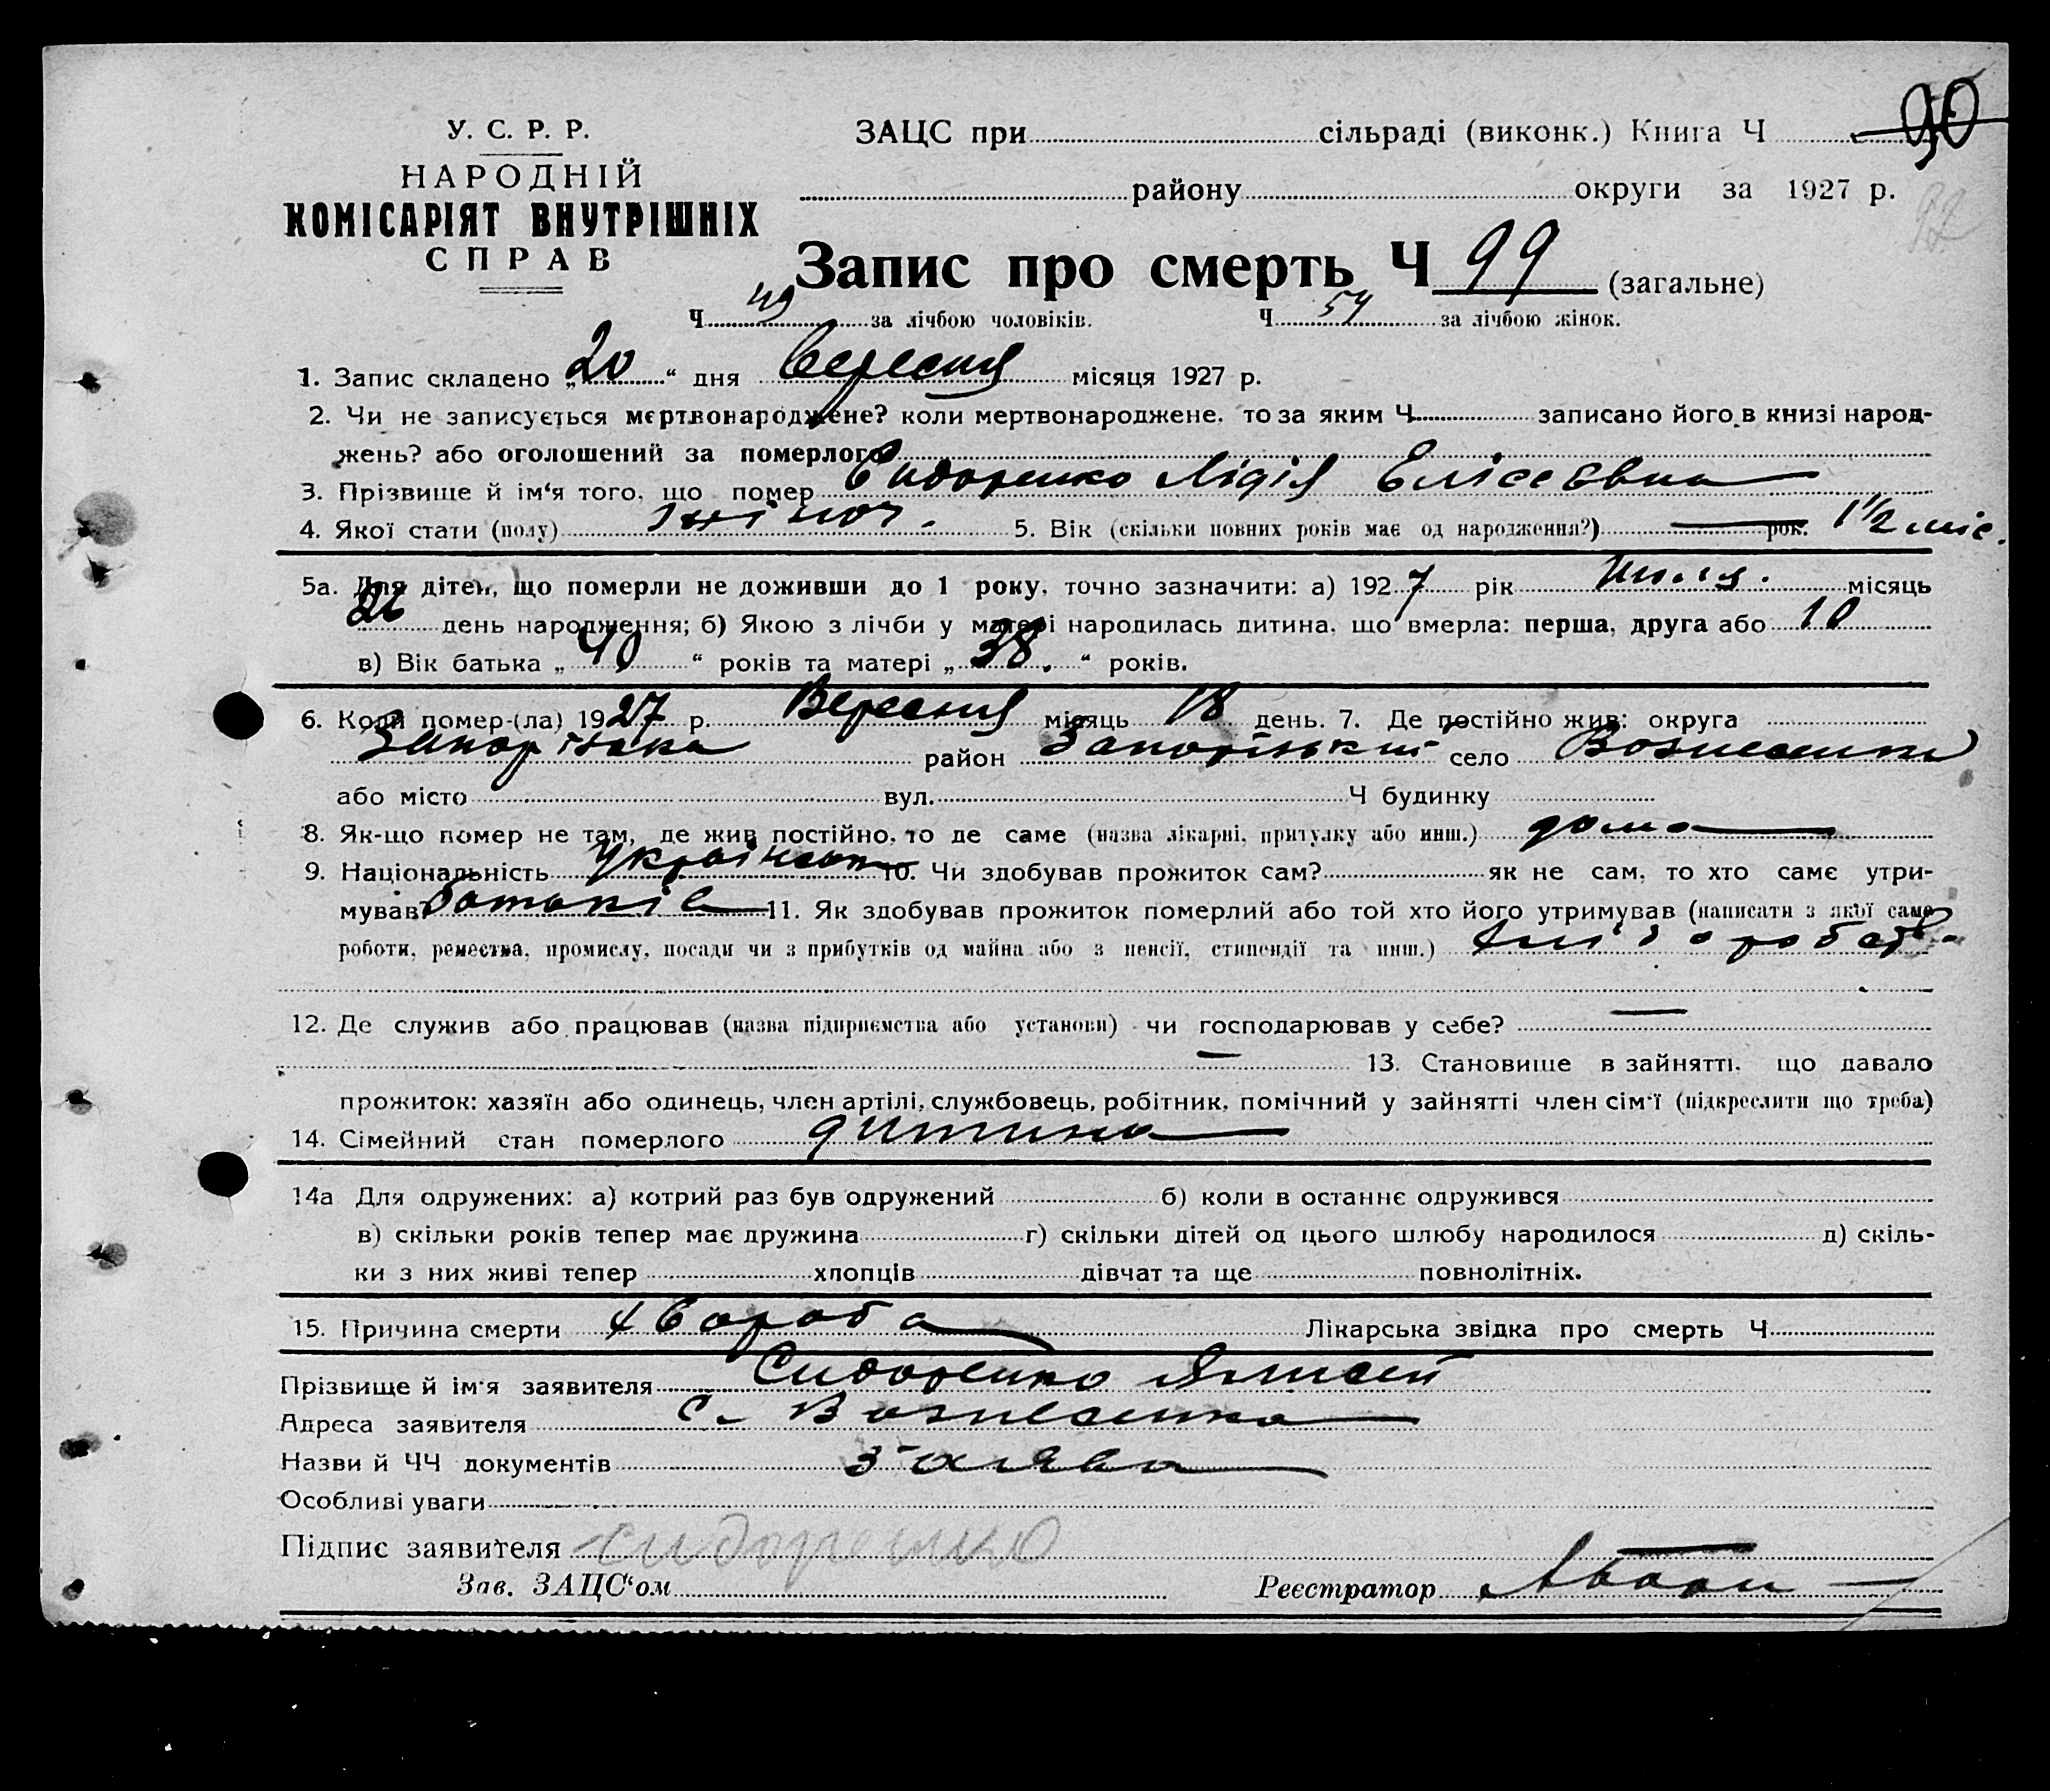 90
92
У. С. Р. Р.
НАРОДНІЙ
КОМІСАРІЯТ ВНУТРІШНІХ
СПРАВ
ЗАЦС при сільраді (виконк.) Книга Ч
району округи за 1927 р.
Запис про смерть Ч 99 (загальне)
Ч 49 за лічбою чоловіків. Ч 54 за лічбою жінок.
1. Запис складено „20“ дня Вересня місяця 1927 р.
2. Чи не записується мертвонароджене? коли мертвонароджене, то за яким Ч записано його в книзі народ-
жень? або оголошений за померлого
3. Прізвище й ім‘я того, що помер Сидоренко Лідія Елісеєвна
4. Якої стати (полу) жіноч. 5. Вік (скільки повних років має од народження?) рок. 1 1/2 міс.
5а. Для дітей, що померли не доживши до 1 року, точно зазначити: а) 1927 рік місяць
26 день народження; б) Якою з лічби у матері народилась дитина, що вмерла: перша, друга або 10
в) Вік батька „40“ років та матері „38.“ років.
6. Коли помер-(ла) 1927 р. Вересня місяць 18 день. 7. Де постійно жив: округа
Запоріжська район Запоріжський село Вознесенка
або місто вул. Ч будинку
8. Як-що помер не там, де жив постійно, то де саме (назва лікарні, притулку або инш.) дома
9. Національність 10. Чи здобував прожиток сам? як не сам, то хто саме утри-
мував батьків 11. Як здобував прожиток померлий або той хто його утримував (написати з якої саме
роботи, ремества, промислу, посади чи з прибутків од майна або з пенсії, стипендії та инш.)
12. Де служив або працював (назва підприємства або установи) чи господарював у себе? —
— 13. Становище в зайнятті, що давало
прожиток: хазяїн або одинець, член артілі, службовець, робітник, помічний у зайнятті член сім'ї (підкреслити що треба)
14. Сімейний стан померлого дитина
14а Для одружених: а) котрий раз був одружений б) коли в останнє одружився
в) скільки років тепер має дружина г) скільки дітей од цього шлюбу народилося д) скіль-
ки з них живі тепер хлопців дівчат та ще повнолітніх.
15. Причина смерти хвороба Лікарська звідка про смерть Ч
Прізвище й ім'я заявителя Сидоренко
Адреса заявителя с. Вознесенка
Назви й ЧЧ документів заява
Особливі уваги
Підпис заявителя Сидоренко
Зав. ЗАЦС‘ом Реєстратор